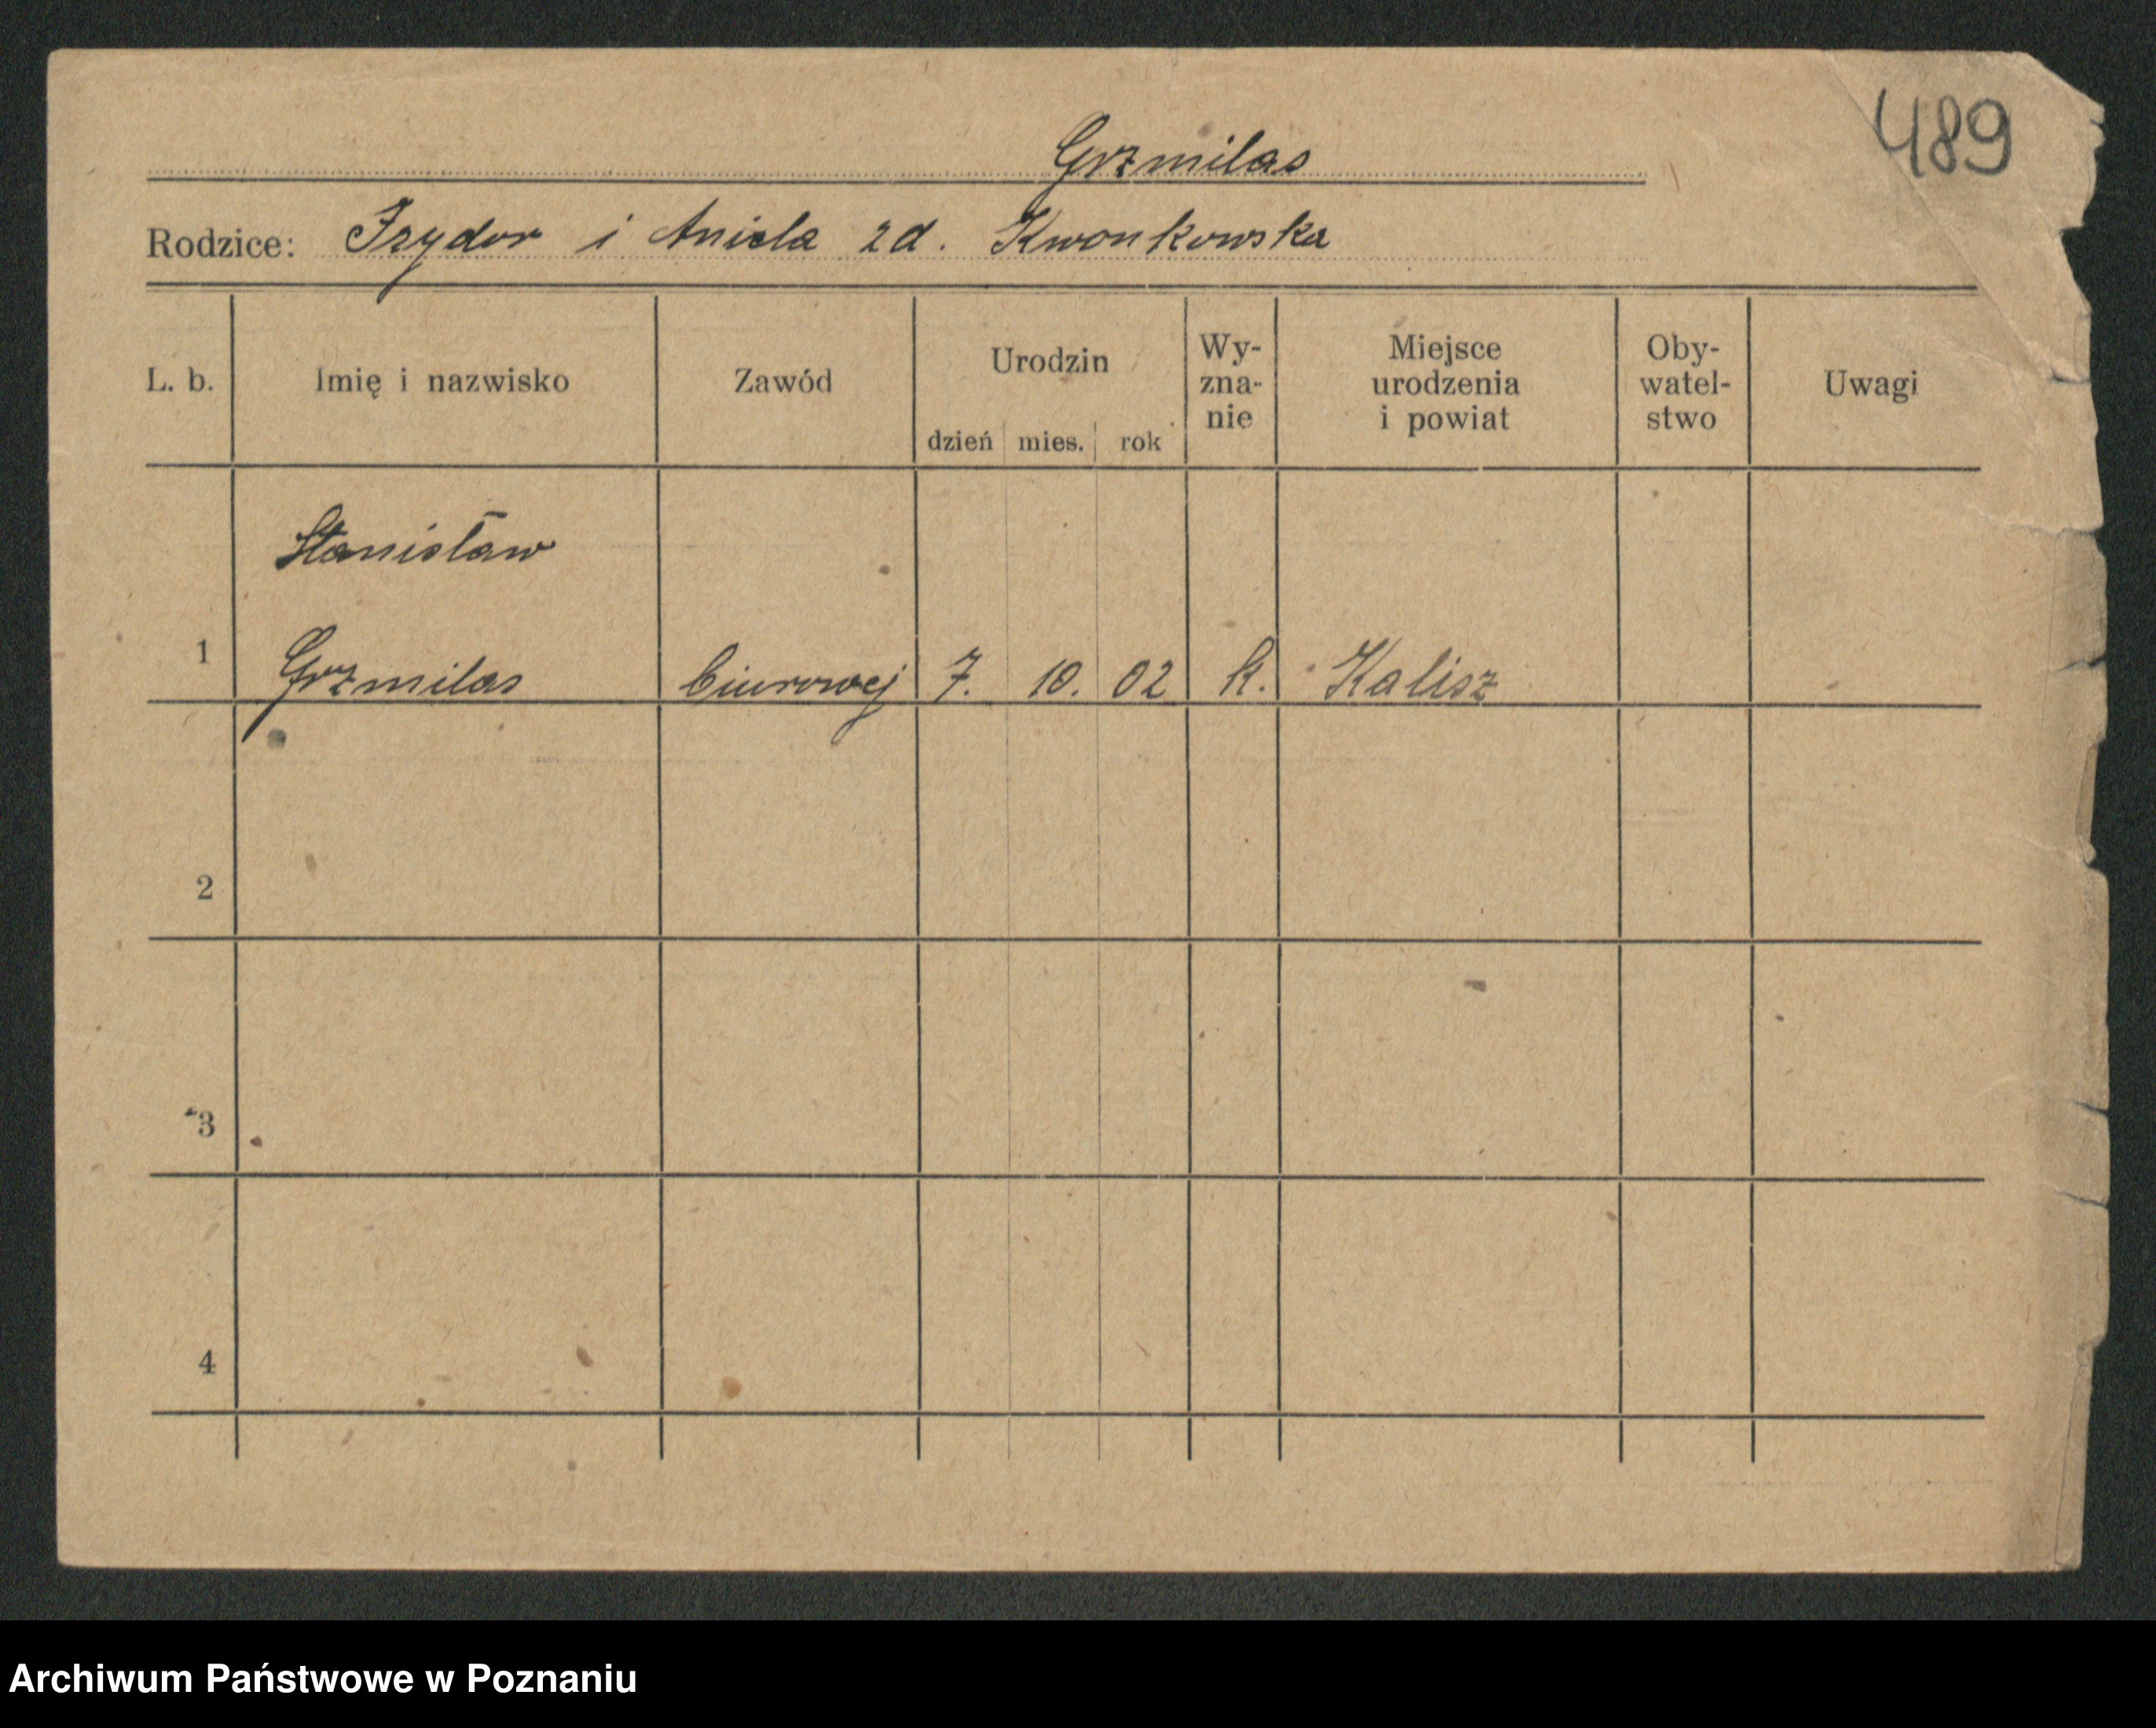 489
Grzmilas
Rodzice: Izydor i Aniela zd. Kwonkowska
L. b.
Imię i nazwisko
Zawód
Urodzin
dzień mies. rok
Wy-
zna-
nie
Miejsce
urodzenia
i powiat
Oby-
watel-
stwo
Uwagi
Stanisław
1 Grzmilas biurowej 7. 10. 02 k. Kalisz
2
3
4
Archiwum Państwowe w Poznaniu